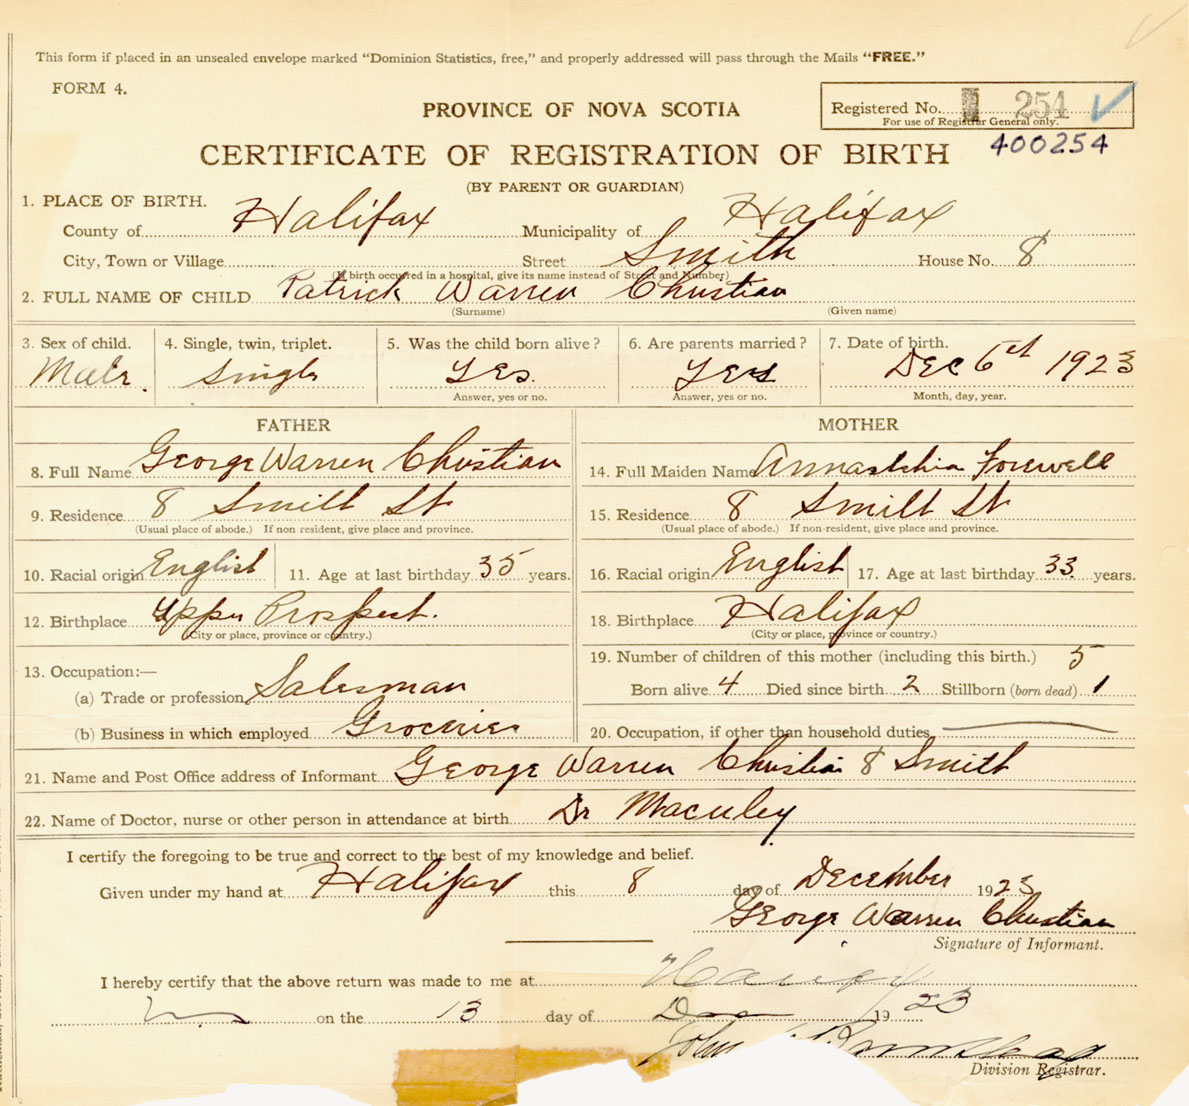 This form if placed in an unsealed envelope marked "Dominion Statistics, free," and properly addressed will pass through the Mails "FREE."
FORM 4.
PROVINCE OF NOVA SCOTIA
Registered No. 254
For use of Registrar General only.
400254
CERTIFICATE OF REGISTRATION OF BIRTH
(BY PARENT OR GUARDIAN)
1. PLACE OF BIRTH.
County of Halifax Municipality of Halifax
City, Town or Village Street Smith House No. 8
(If birth occurred in a hospital, give its name instead of Street and Number)
2. FULL NAME OF CHILD Patrick Warren Christian
(Surname) (Given name)
3. Sex of child. 4. Single, twin, triplet. 5. Was the child born alive? 6. Are parents married? 7. Date of birth.
Male. Single Yes. Yes Dec 6 1923
Answer, yes or no. Answer, yes or no. Month, day, year.
FATHER MOTHER
8. Full Name George Warren Christian 14. Full Maiden Name
9. Residence 8 Smith St 15. Residence 8 Smith St
(Usual place of abode.) If non resident, give place and province. (Usual place of abode.) If non-resident, give place and province.
10. Racial origin English 11. Age at last birthday 35 years. 16. Racial origin English 17. Age at last birthday 33 years.
12. Birthplace Upper Prospect. 18. Birthplace Halifax
(City or place, province or country.) (City or place, province or country.)
13. Occupation:— 19. Number of children of this mother (including this birth.) 5
(a) Trade or profession Salesman Born alive 4 Died since birth 2 Stillborn (born dead) 1
(b) Business in which employed Groceries 20. Occupation, if other than household duties
21. Name and Post Office address of Informant George Warren Christian 8 Smith
22. Name of Doctor, nurse or other person in attendance at birth Dr Maculey
I certify the foregoing to be true and correct to the best of my knowledge and belief.
Given under my hand at Halifax this 8 day of December 1923
George Warren Christian
Signature of Informant.
I hereby certify that the above return was made to me at
on the 13 day of 1923
John
Division Registrar.